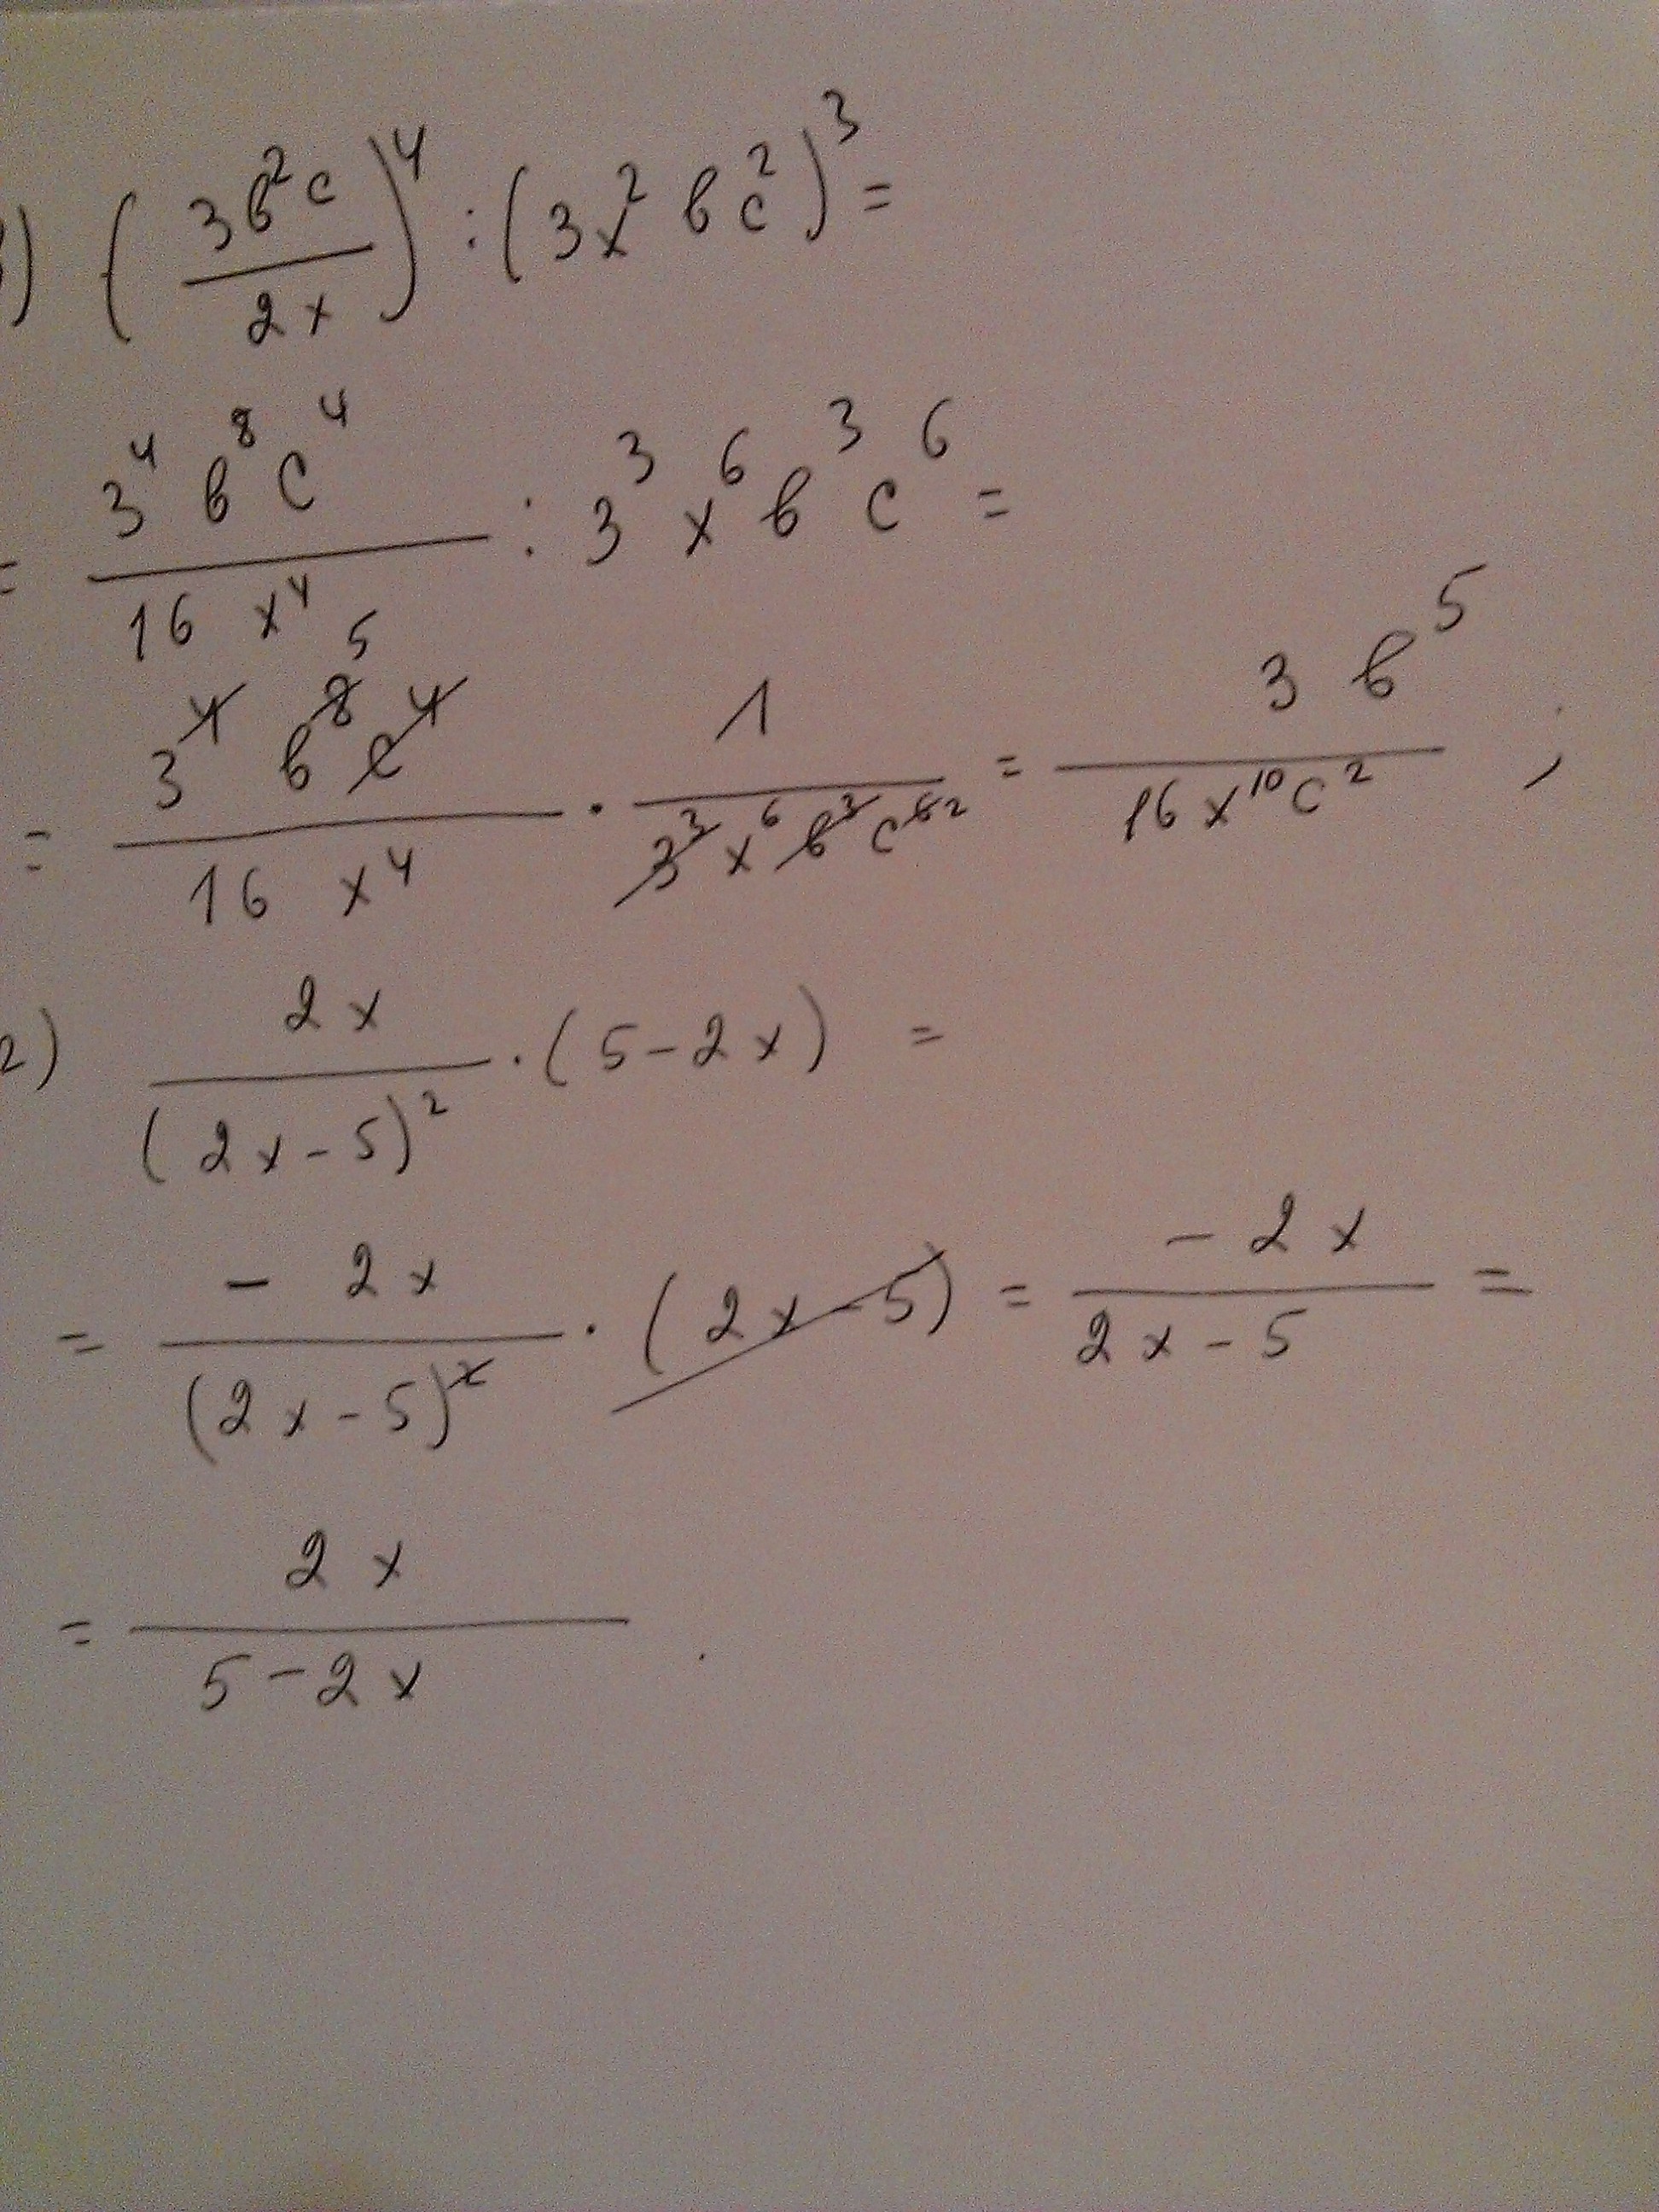 ) (3b²c / 2x)⁴ : (3x²bc²)³ =
= 3⁴b⁸c⁴ / 16x⁴ : 3³x⁶b³c⁶ =
= 3⁴b⁸ ⁵c⁴ / 16x⁴ · 1 / 3³x⁶b³c⁶ ² = 3b⁵ / 16x¹⁰c² ;
2) 2x / (2x-5)² · (5-2x) =
= -2x / (2x-5)² · (2x-5) = -2x / 2x-5 =
= 2x / 5-2x .